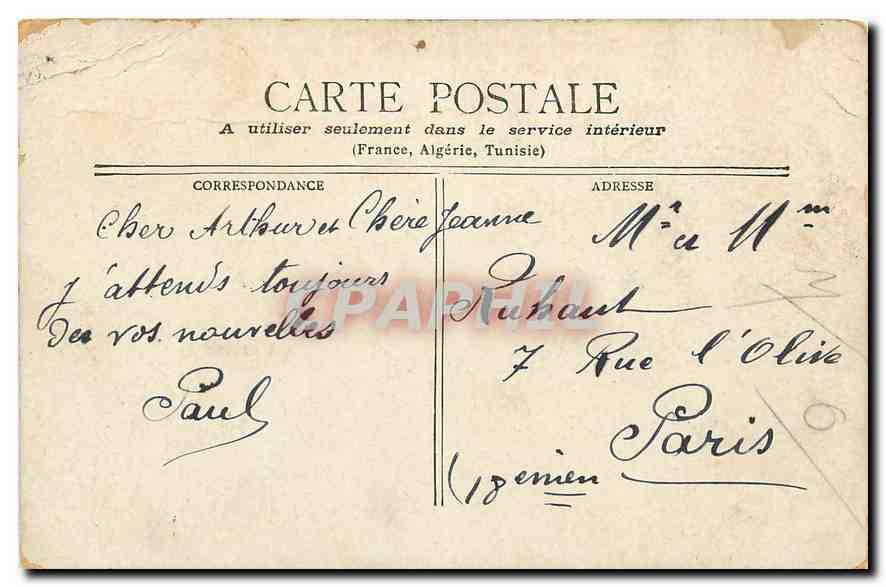 CARTE POSTALE
A utiliser seulement dans le service intérieur
(France, Algérie, Tunisie)
CORRESPONDANCE
Cher Arthur et Chère Jeanne
J'attends toujours
de vos nouvelles
Paul
ADRESSE
Mr et Mme
Ruhant
7 Rue l'Olive
Paris
(18 emen
CPAPHIL